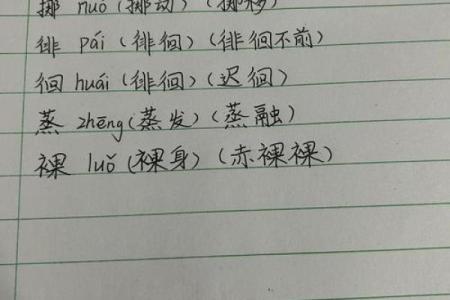 挪 nuó (挪动) (挪移)
徘 pái (徘徊) (徘徊不前)
徊 huái (徘徊) (迟徊)
蒸 zhēng (蒸发) (蒸融)
裸 luǒ (裸身) (赤裸裸)